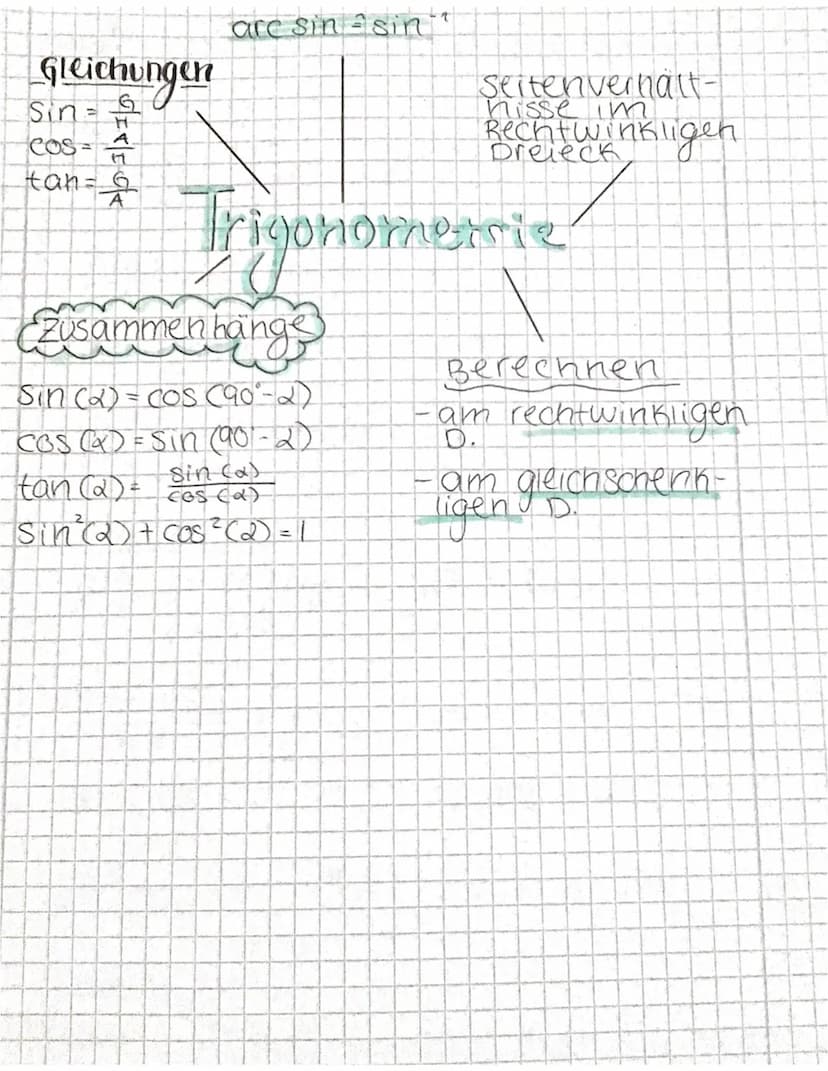 arc sin ≙ sin⁻¹
Gleichungen
sin = G/H
cos = A/H
tan = G/A
Seitenverhält-
nisse im
Rechtwinkligen
Dreieck
Trigonometrie
Zusammenhänge
sin(α) = cos(90°-α)
cos(α) = sin(90°-α)
tan(α) = sin(α)/cos(α)
sin²(α) + cos²(α) = 1
Berechnen
- am rechtwinkligen
D.
- am gleichschenk-
ligen D.